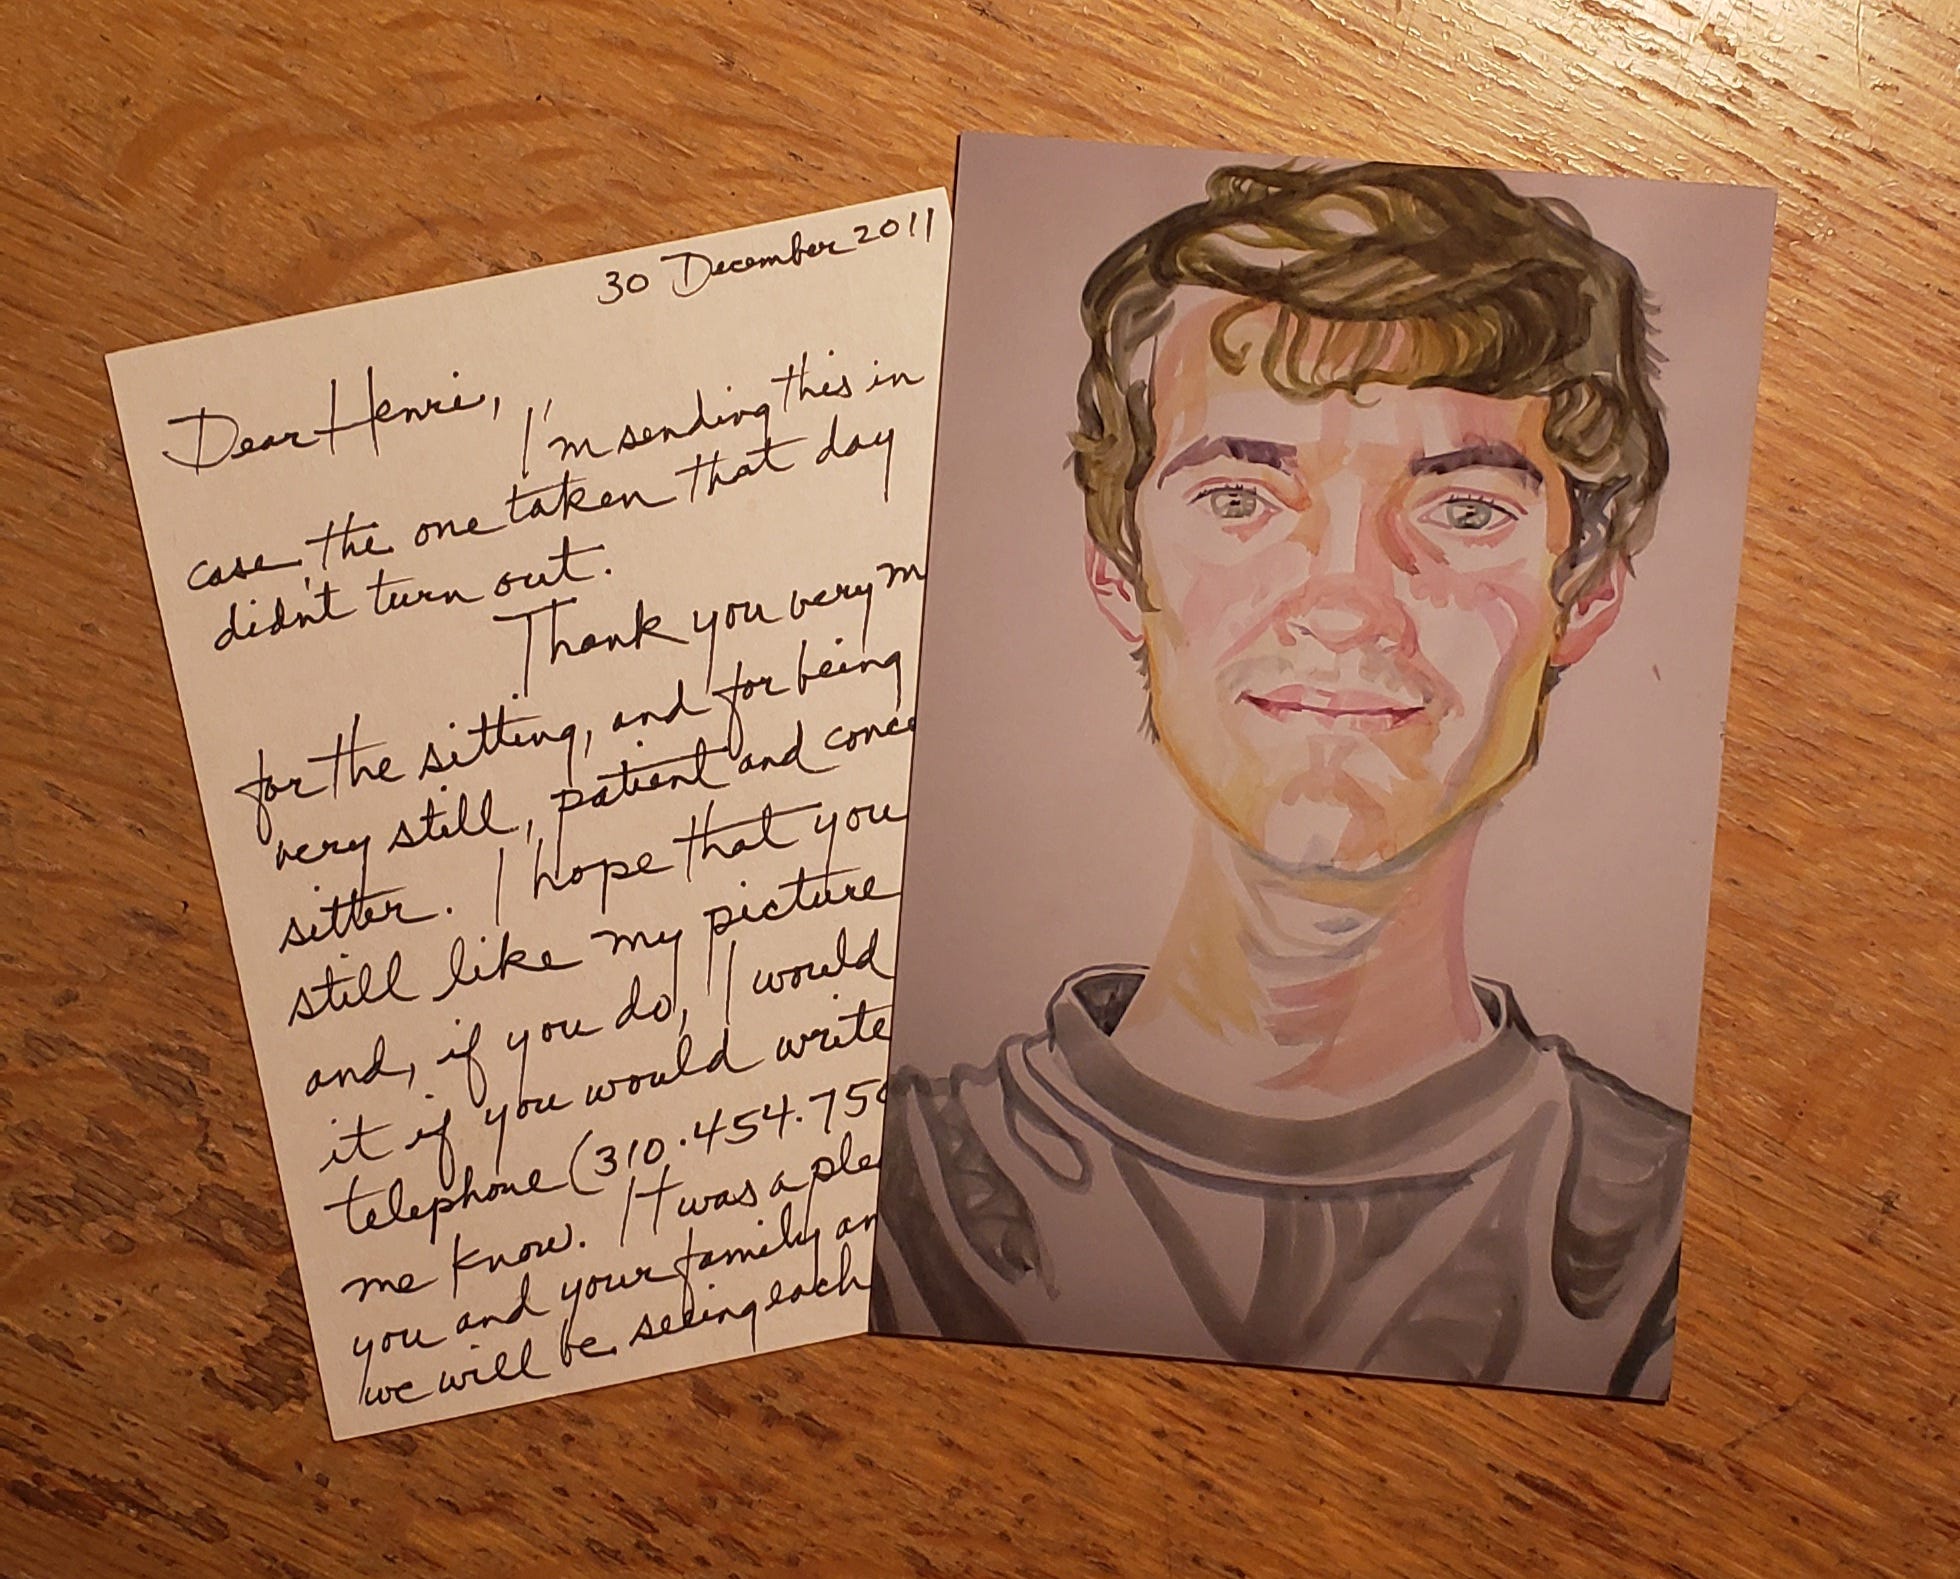 30 December 2011
Dear Henri,
I'm sending this in
case, the one taken that day
didn't turn out.
Thank you very m
for the sitting, and for being
very still, patient and conce
sitter. I hope that you
still like my picture
and, if you do, I would
it if you would write
telephone (310.454.750
me know. It was a plea
you and your family an
we will be seeing each